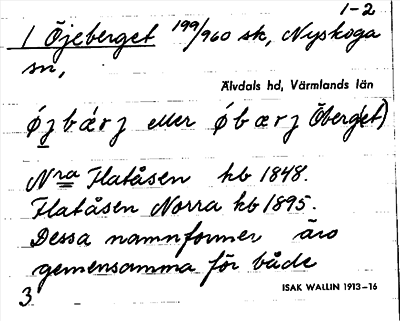 1-2
1 Öjeberget 199/960 sk, Nyskoga
sn,
Älvdals hd, Värmlands län
ǿjbærj eller ǿbærj Öberg(et)
Nra Flatåsen hb 1848.
Flatåsen Norra hb 1895.
Dessa namnformer äro
gemensamma för både
3
ISAK WALLIN 1913–16